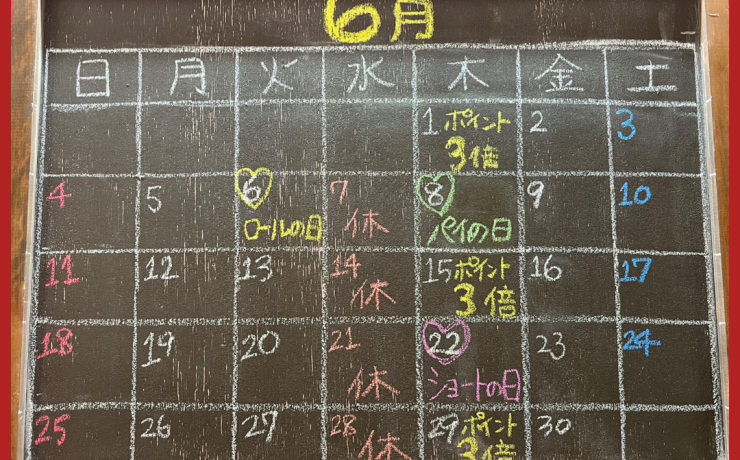 6月
日 月 火 水 木 金 土
1 ポイント 2 3
3倍
4 5 6 7 8 9 10
ロールの日 休 パイの日
11 12 13 14 15 ポイント 16 17
休 3倍
18 19 20 21 22 23 24
休 ショートの日
25 26 27 28 29 ポイント 30
休 3倍